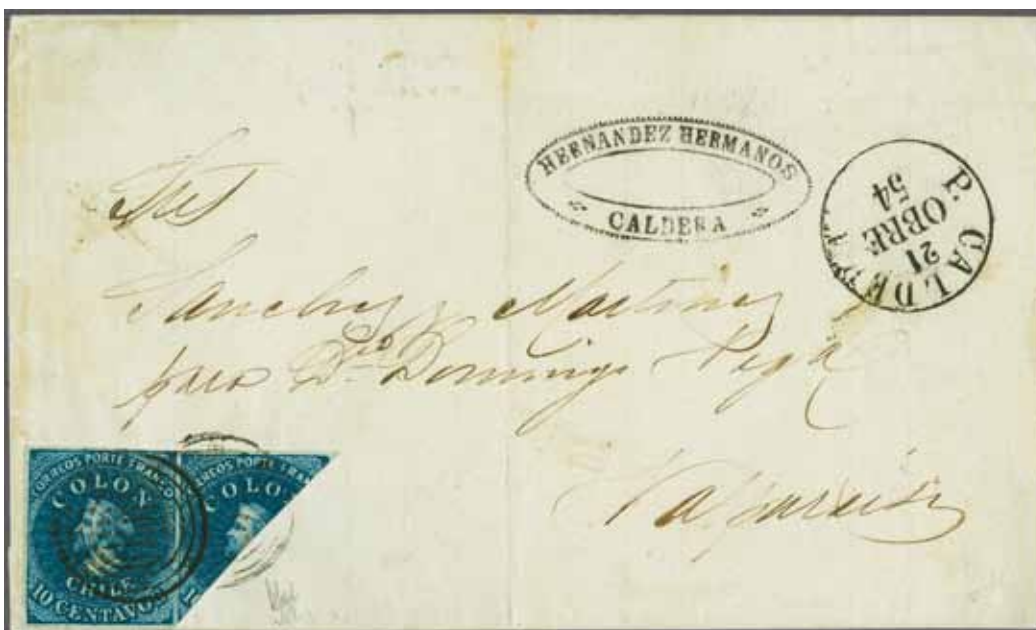 HERNANDEZ HERMANOS
CALDERA
CALDERA
21
OBRE
54
Sres
Sanchez y Martinez
para Dn Domingo Vega
Valparaiso
CORREOS PORTE FRANCO
COLON
CHILE
10 CENTAVOS
REOS PORTE FRANCO
COLON
1